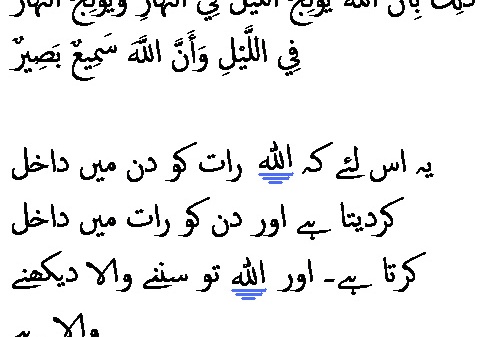 ذَلِكَ بِأَنَّ اللَّهَ يُولِجُ اللَّيْلَ فِي النَّهَارِ وَيُولِجُ النَّهَارَ
فِي اللَّيْلِ وَأَنَّ اللَّهَ سَمِيعٌ بَصِيرٌ
یہ اس لئے کہ الله رات کو دن میں داخل
کردیتا ہے اور دن کو رات میں داخل
کرتا ہے۔ اور الله تو سننے والا دیکھنے
والا ہے